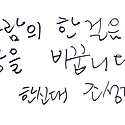 람의 한 걸음
을 바꿉니다
한신대 조성